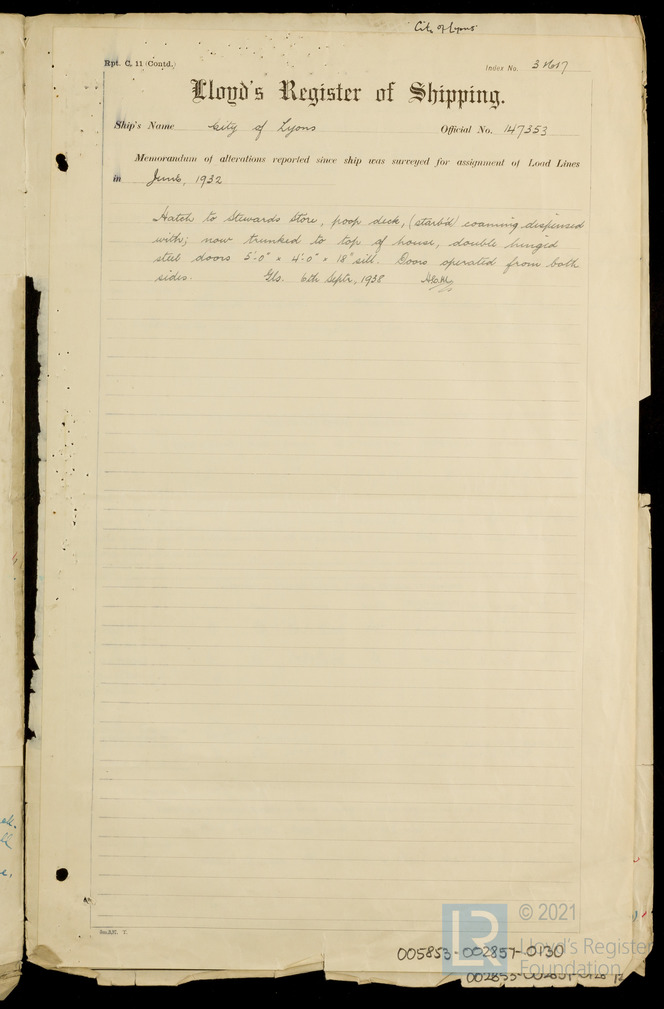 City of Lyons
Rpt. C. 11 (Contd.)
Index No.
Lloyd's Register of Shipping.
Ship's Name City of Lyons Official No. 147353
Memorandum of alterations reported since ship was surveyed for assignment of Load Lines
in June, 1932
Hatch to Stewards Store, poop deck, (starb'd) coaming dispensed
with; now trunked to top of house, double hinged
steel doors 5'-0" × 4'-0" × 18" sill. Doors operated from both
sides. Gls. 6th Septr, 1938
© 2021
Lloyd's Register
Foundation
005853-002857-0130